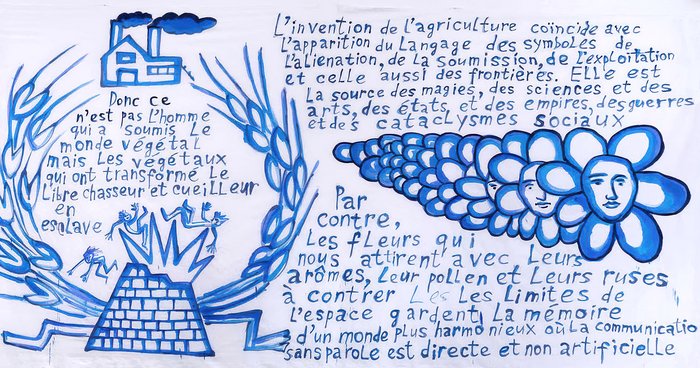 L'invention de l'agriculture coïncide avec
l'apparition du Langage des symboles de
l'alienation, de la Soumission, de l'exploitation
et celle aussi des frontières. Elle est
La source des magies, des sciences, et des
arts, des états, et des empires, des guerres
et des cataclysmes sociaux
Donc ce
n'est pas l'homme
qui a soumis Le
monde végétal
mais Les végétaux
qui ont transformé Le
Libre chasseur et cueilleur
en
esclave
Par
contre,
Les fleurs qui
nous attirent avec Leurs
arômes, Leur pollen et Leurs ruses
à contrer Les Les Limites de
l'espace gardent La mémoire
d'un monde plus harmonieux où la communicatio
sans parole est directe et non artificielle